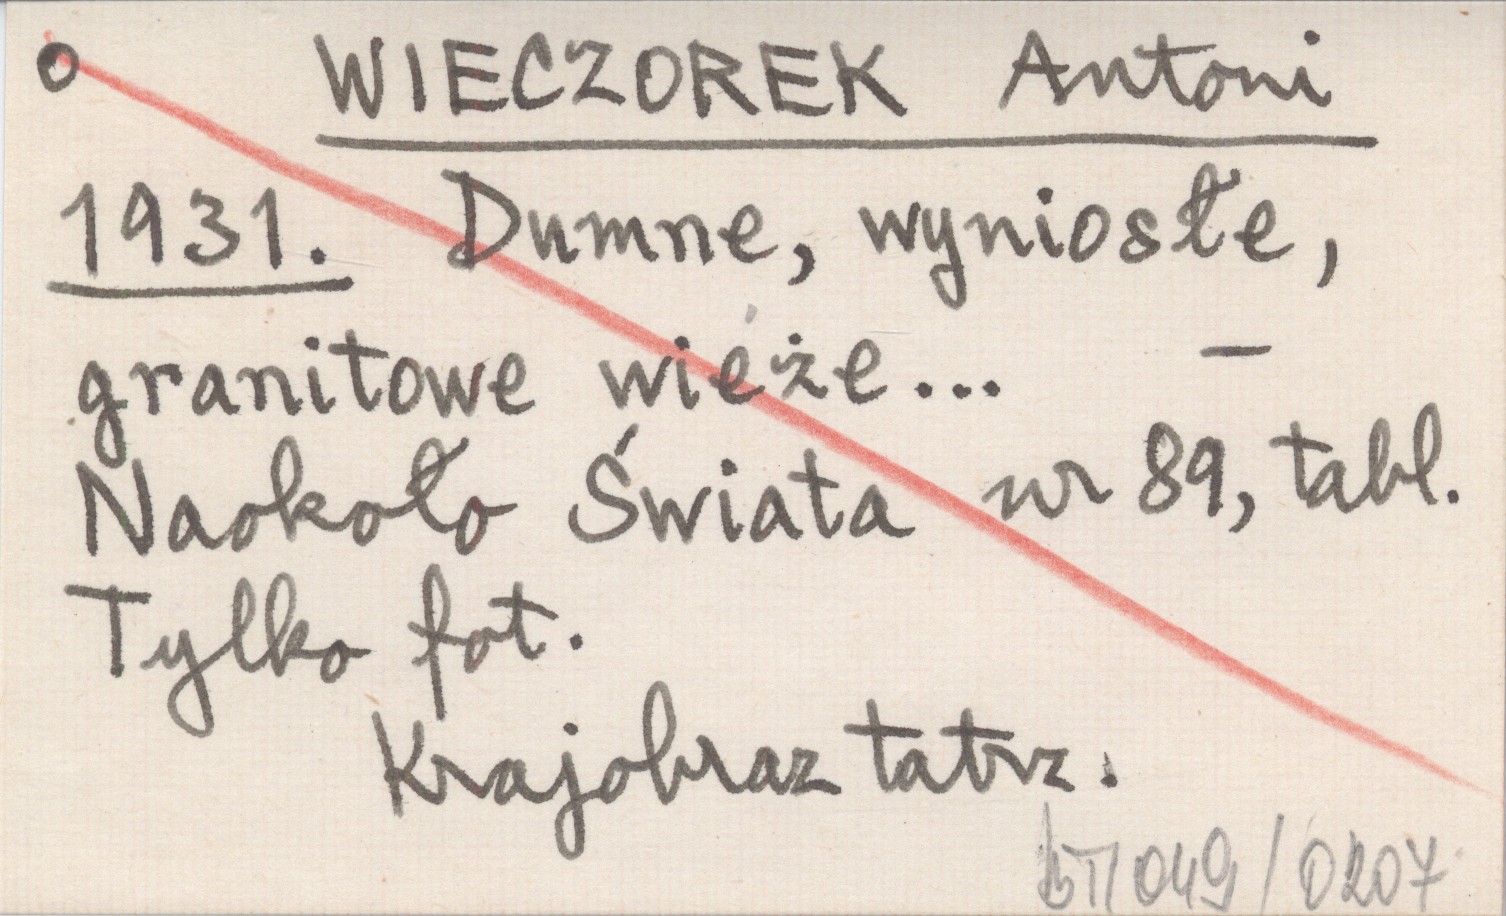 o WIECZOREK Antoni
1931. Dumne, wyniosłe,
granitowe wieże... —
Naokoło Świata nr 89, tabl.
Tylko fot.
Krajobraz tatrz.
BT/049/0207